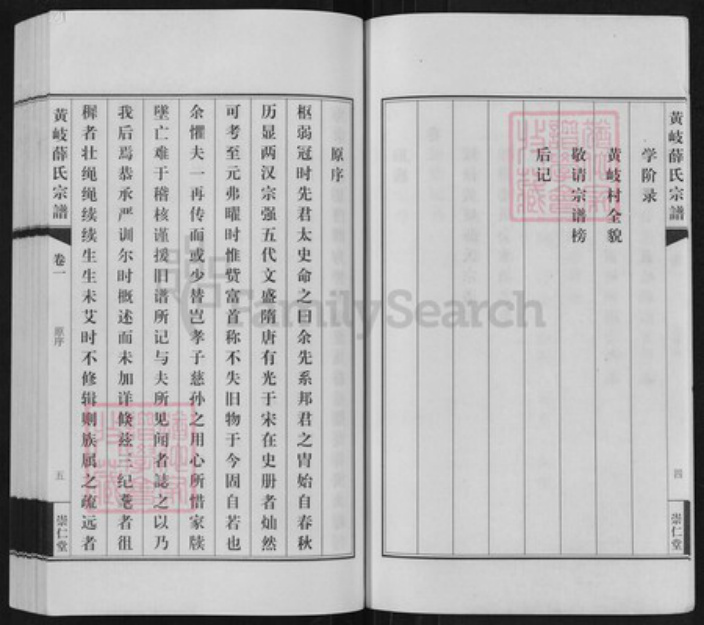 黄岐薛氏宗譜
学阶录
黄岐村全貌
敬请宗谱榜
后记
四
崇仁堂
原序
枢弱冠时先君太史命之曰余先系邦君之胄始自春秋
历显两汉宗强五代文盛隋唐有光于宋在史册者灿然
可考至元弗曜时惟赀富首称不失旧物于今固自若也
余惧夫一再传而或少替岂孝子慈孙之用心所惜家牍
墜亡难于稽核谨援旧谱所记与夫所见闻者誌之以乃
我后焉恭承严训尔时概述而未加详倏兹三纪耄者徂
穉者壮绳绳续续生生未艾时不修辑则族属之疏远者
黄岐薛氏宗譜
卷一
原序
五
崇仁堂
FamilySearch